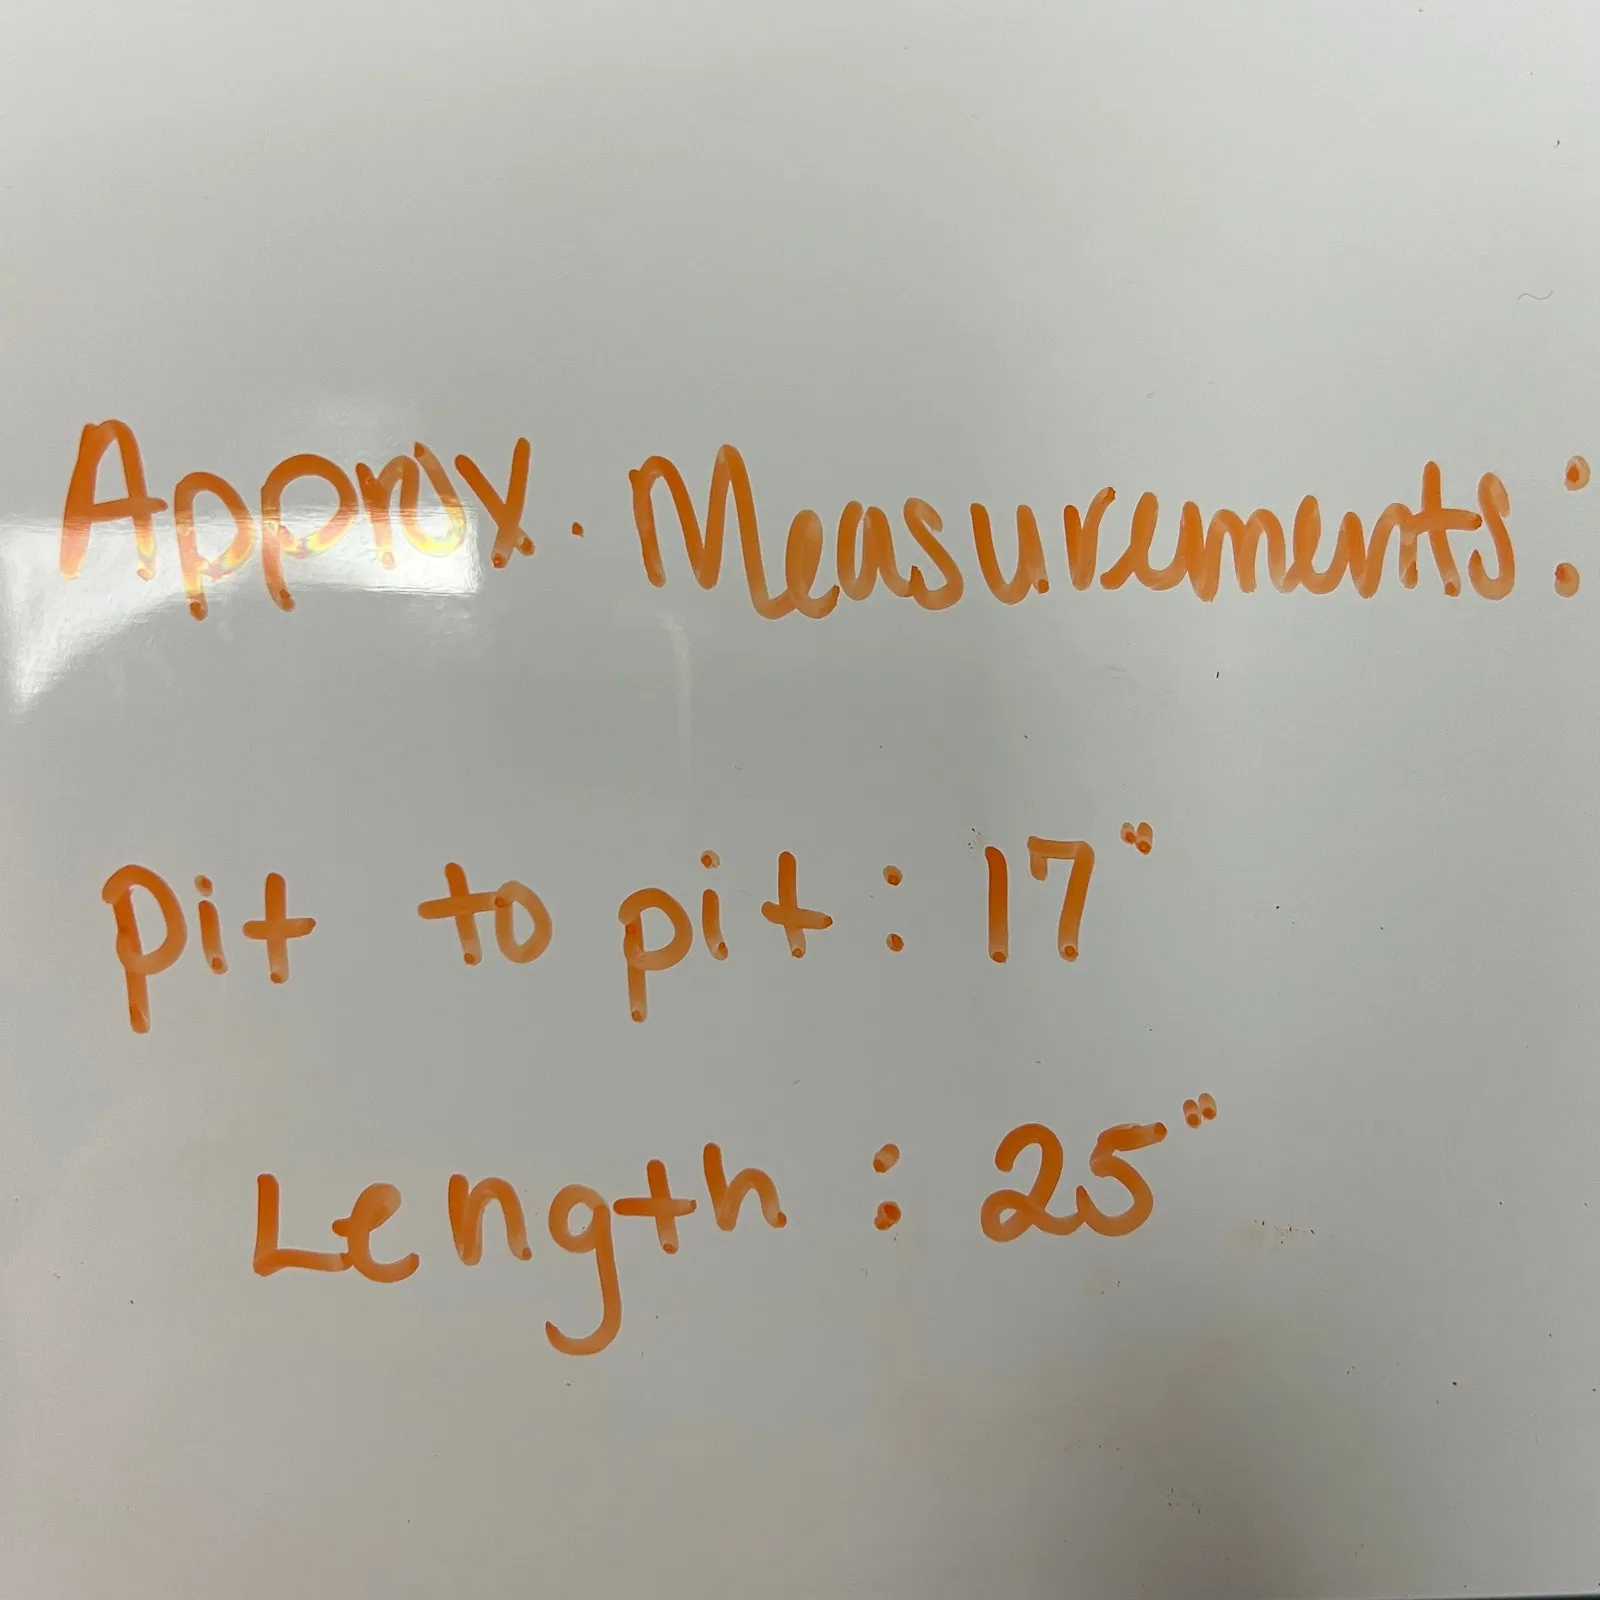 Approx. Measurements:
pit to pit: 17"
Length: 25"